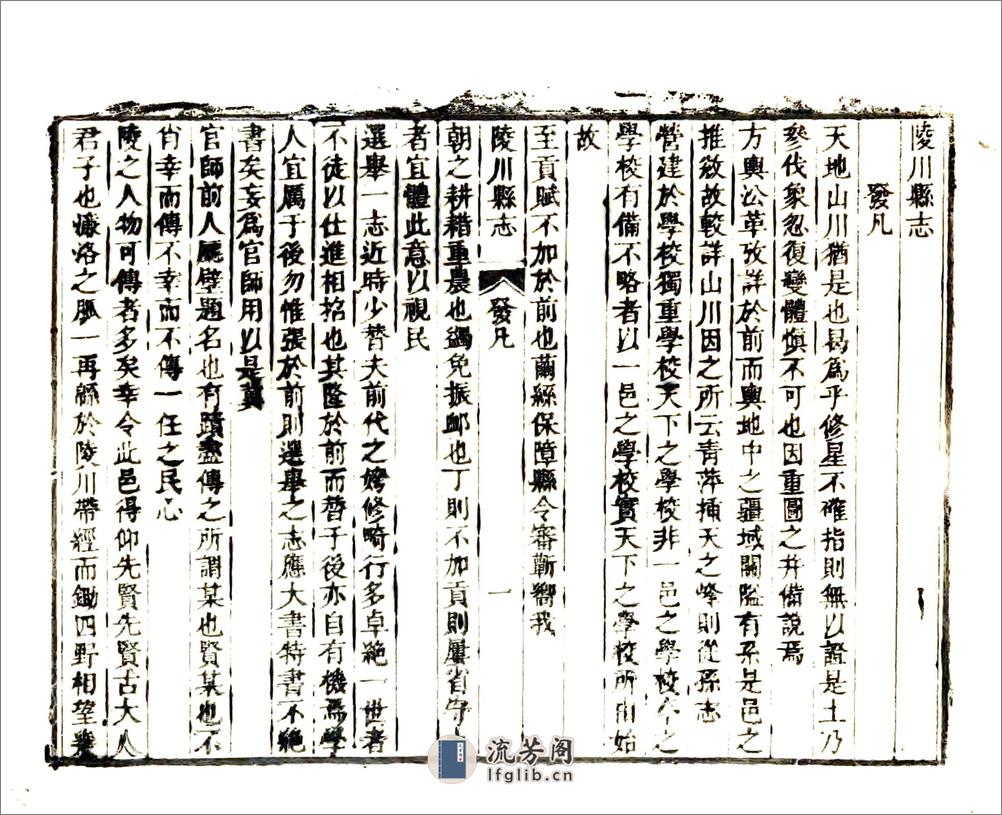 陵川縣志
發凡
天地山川猶是也曷爲乎修星不確指則無以證是土乃
參伐象忽復變體愼不可也因重圖之幷備說焉
方輿沿革攷詳於前而輿地中之疆域關隘有系是邑之
推敓故較詳山川因之所云青萍揷天之峰則從孫志
營建於學校獨重學校天下之學校非一邑之學校他之
學校有備不略者以一邑之學校實天下之學校所由始
故
至貢賦不加於前也繭絲保障縣令審蘄嚮我
陵川縣志
發凡
一
朝之耕耤重農也蠲免振卹也丁則不加貢則屢省守土
者宜體此意以視民
選舉一志近時少替夫前代之姱修畸行多卓絶一世者
不徒以仕進相招也其隆於前而替于後亦自有機焉學
人宜厲于後勿惟張於前則選舉之志應大書特書不絶
書矣妄爲官師用以是冀
官師前人廳壁題名也有蹟盡傳之所謂某也賢某也不
肖幸而傳不幸而不傳一任之民心
陵之人物可傳者多矣幸令此邑得仰先賢先賢古大人
君子也濂洛之脈一再緜於陵川帶經而鋤四野相望
流芳阁
lfglib.cn